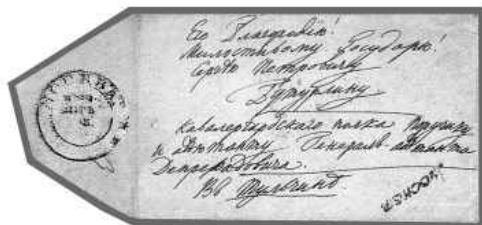 Его Благородію!
Милостивому Государю!
Сергѣю Петровичу
Бутурлину
Кавалергардскаго полка
и Адъютанту Генералъ-адъютанта
Депрерадовича.
Въ Тульчинѣ
МОСКВА